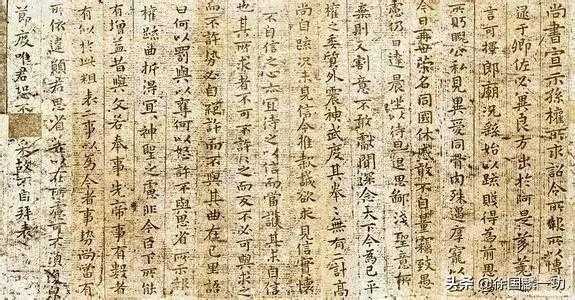 尚書宣示孫權所求詔令所報所以博
逮于卿佐必冀良方出於阿是芻蕘
言可擇郎廟況繇始以疏賤得為前恩
所盻睨公私見異愛同骨肉殊遇厚寵以
今日再世榮名同國休慼敢不自量竊致愚
慮仍日達晨坐以待旦退思鄙淺聖意所
棄則又割意不敢獻聞深念天下今為已平
權之委質外震神武度其拳〻無有二計高
尚自疏況未見信今推款誠欲求見信實懷
不自信之心亦宜待之以信而當護其未自信
也其所求者不可不許許之而反不必可與求之
而不許勢必自絕許而不與其曲在己里語
曰何以罰與以奪何以怒許不與思省所示報
權疏曲折得宜宜神聖之慮非今臣下所能
有增益昔與文若奉事先帝事有數者
有似於此粗表二事以為今者事勢尚當有
所依違願君思省若以在所慮可不須自
節度唯君恐不采故不自拜表
头条 @徐国影一功